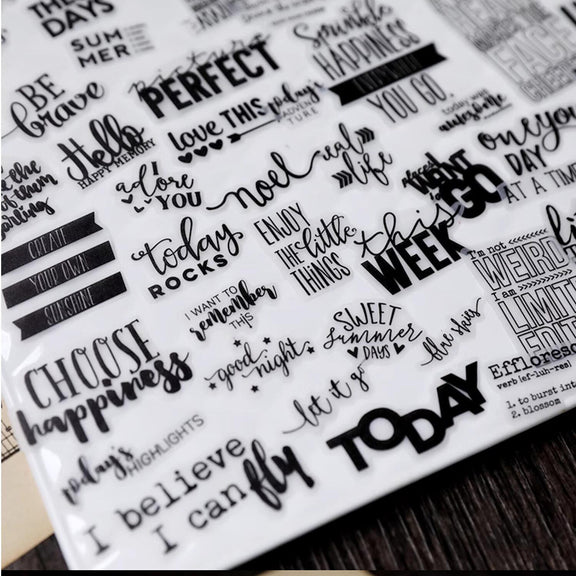 THE
DAYS
SUM
MER
picture
PERFECT
Sprinkle
HAPPINESS
YOU GO
BE
brave
Hello
HAPPY MEMORY
love THIS
today's
ADVEN
TURE
today was
awesome
one
DAY
AT A TIME
I
adore
YOU
noel
real
life
WANT
GO
CREATE
YOUR OWN
SUNSHINE
today
ROCKS
ENJOY
THE little
THINGS
this
WEEK
I'm not
WEIRD
I am
LIMITED
EDITION
I WANT TO
remember
THIS
SWEET
summer
DAYS
blue skies
CHOOSE
happiness
good night
let it go
TODAY
Effloresc
verb(ef-luh-res)
1. to burst int
2. blossom
today's
HIGHLIGHTS
I believe
I can fly